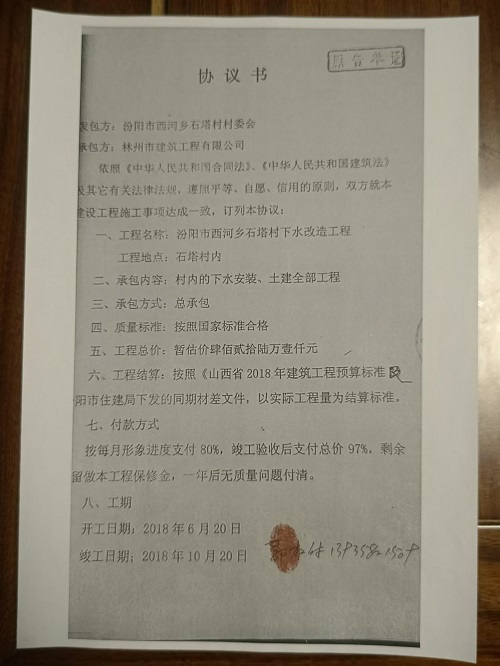 协议书
发包方：汾阳市西河乡石塔村村委会
承包方：林州市建筑工程有限公司
依照《中华人民共和国合同法》、《中华人民共和国建筑法》
及其它有关法律法规，遵照平等、自愿、信用的原则，双方就本
建设工程施工事项达成一致，订列本协议：
一、工程名称：汾阳市西河乡石塔村下水改造工程
工程地点：石塔村内
二、承包内容：村内的下水安装、土建全部工程
三、承包方式：总承包
四、质量标准：按照国家标准合格
五、工程总价：暂估价肆佰贰拾陆万壹仟元
六、工程结算：按照《山西省2018年建筑工程预算标准及
阳市住建局下发的同期材差文件，以实际工程量为结算标准。
七、付款方式
按每月形象进度支付80%，竣工验收后支付总价97%，剩余
留做本工程保修金，一年后无质量问题付清。
八、工期
开工日期：2018年6月20日
竣工日期；2018年10月20日